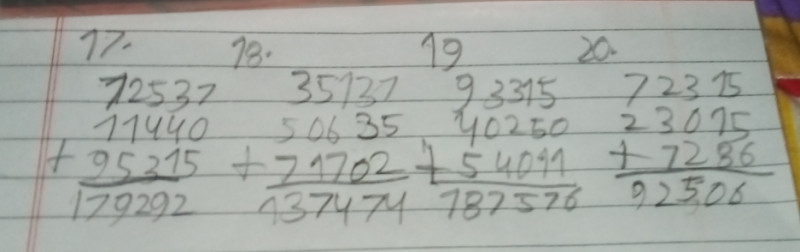 17. 18. 19 20.
72537 35137 93315 72315
11440 50635 40250 23015
+95315 +71702 +54011 +7286
179292 137474 187576 92506